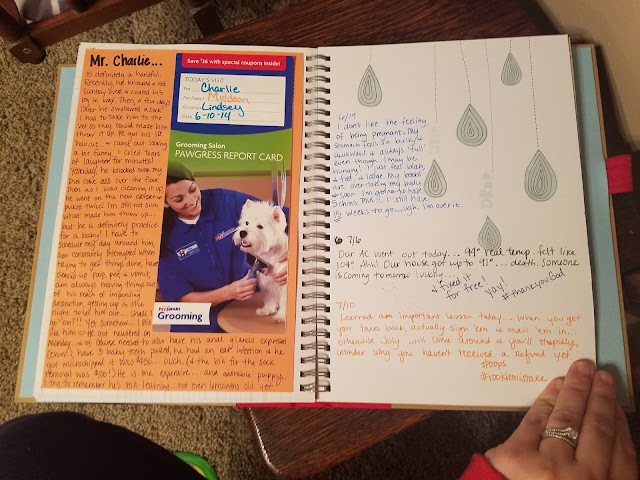 Mr. Charlie...
is definitely a handful.
Recently, he knocked a red
scentsy over & coated his
leg in wax. Then, a few days
later he swallowed a sock!
I had to take him to the
vet so they could make him
throw it up. He got his 1st
haircut & came out looking
a bit funny. I cried tears
of laughter for minutes!
Yesterday, he knocked over my
cake all over the floor
then as I was cleaning it up,
he went on the new carpet &
pukes twice! I'm still not sure
what made him throw up...
but he is definitely practice
for a baby! I have to
schedule my day around him,
am constantly interrupted when
trying to get things done, have to
clean up poop, pee, & vomit,
am always moving things out
of his reach of impending
destruction, getting up in the
night to let him out...
go on!!! Yet somehow... I still
love him. He got neutered on
Monday & of course needed to also have his anal glands expressed
(ewww), have 3 baby teeth pulled, he had an ear infection & he
got microchipped. It was $450... ouch. (& the bill for the sock
removal was $100!) He is one expensive... and adorable puppy.
I try to remember he's still learning... not even 6 months old yet.
Save $36 with special coupons inside!
TODAY'S VISIT
Pet Charlie
Pet Parent Muldoon
Groomer Lindsey
Date 6-10-14
Grooming Salon
PAWGRESS REPORT CARD
PETSMART
Grooming
6/19
I don't like the feeling
of being pregnant. My
stomach feels so bulky &
awkward & always "full"
even though I may be
hungry. I just feel blah,
& fat, & large. My boobs
are over taking my body
soon I'm gonna to have
5 chins. Plus, I still have
15 weeks to go... ugh, I'm over it.
DROP
7/6
Our AC went out today... 94° real temp. felt like
104°. Ahh! Our house got up to 91°... death. Someone
is coming tomorrow luckily...
↓ fixed it
for free! yay!
#thankyouGod
7/10
Learned an important lesson today... When you got
your taxes back, actually sign 'em & mail 'em in...
otherwise July will come around & you'll stupidly
wonder why you haven't received a refund yet.
#oops
#rookiemistake